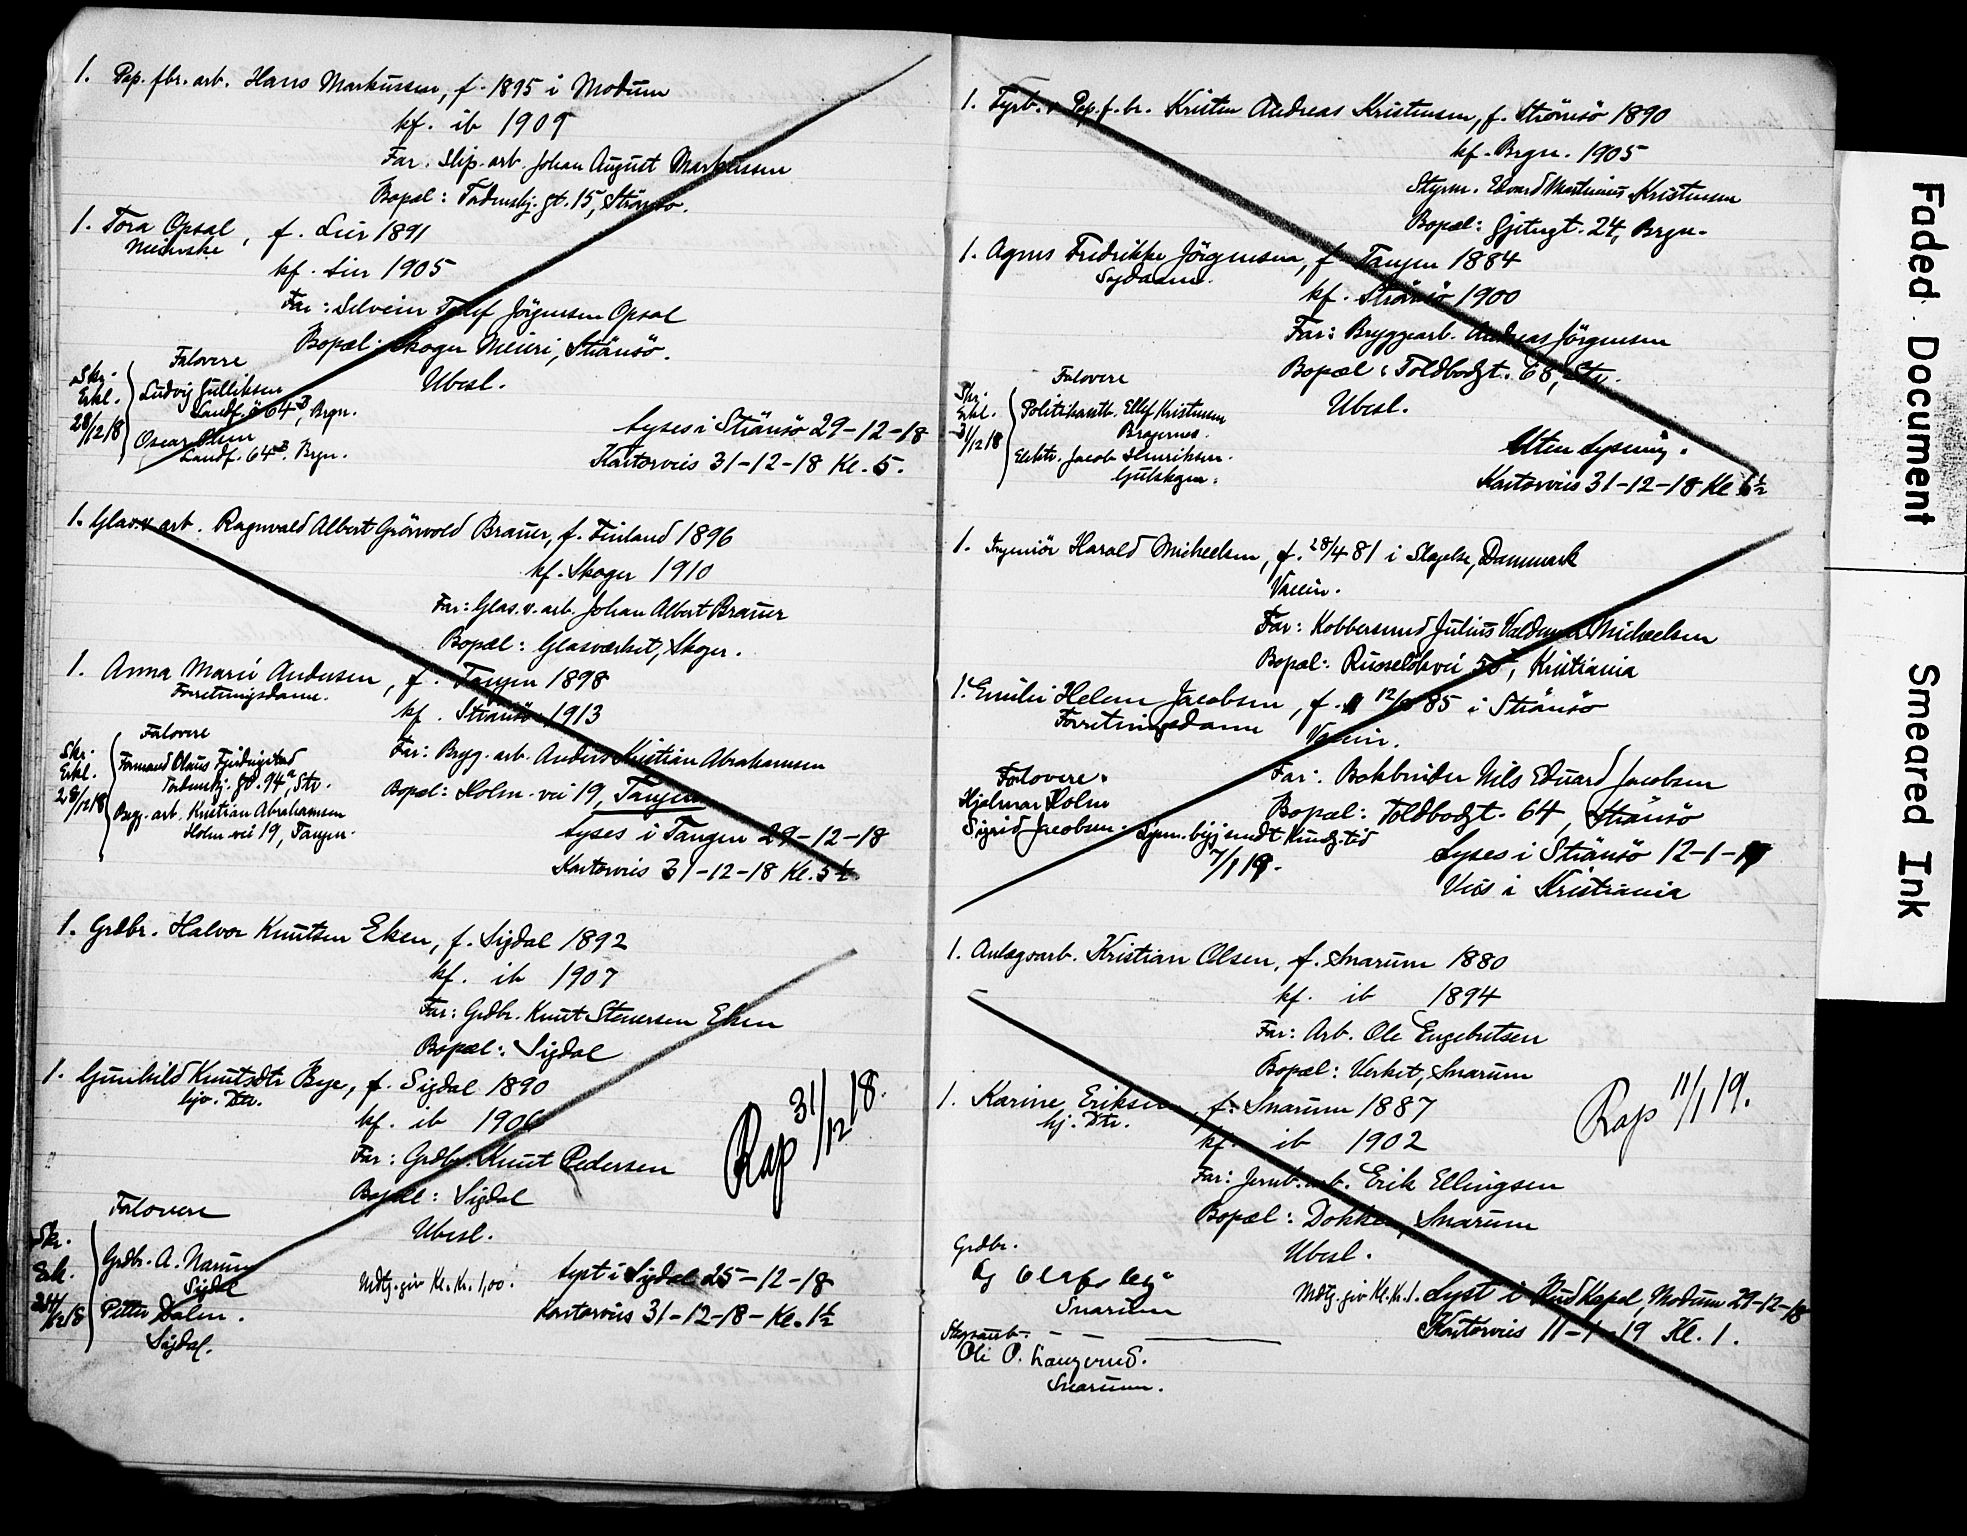 1. Pap. fbr. arb. Hans Markussen, f. 1895 i Modum
kf. ib 1909
Far. Slip. arb. Johan August Markussen
Bopæl: Tordenskj. gt. 15, Strömsö.
1. Tora Opsal, f. Lier 1891
Meierske
kf. Lier 1905
Far: Jörgensen Opsal
Bopæl: Skoger Meieri, Strömsö.
Ubesl.
Forlovere
Skr. Erkl. 28/12 18
Ludvig Gulliksen
Landf. ö 64 B, Brgn.
Oscar Olsen
Landf. 64 B. Brgn.
Lyses i Strömsö 29-12-18
Kontorvies 31-12-18 Kl. 5.
1. Glas.v. arb. Ragnvald Albert Grönvold Brauer, f. Finland 1896
kf. Skoger 1910
Far: Glas. v. arb. Johan Albert Brauer
Bopæl: Glasværket, Skoger.
1. Anna Marie Andersen, f. Tangen 1898
Forretningsdame.
kf. Strömsö 1913
Far: Brygg. arb. Anders Kristian Abrahamsen
Bopæl: Holm. vei 19, Tangen
Forlovere
Skr. Erkl. 28/12 18
Formand Olaus Fjeldngstad
Tordenskj. gt. 94 a, Str.
Brygg. arb. Kristian Abrahamsen
Holm vei 19, Tangen.
Lyses i Tangen 29-12-18
Kontorvies 31-12-18 Kl. 5½
1. Grdbr. Halvor Knutsen Eken, f. Sigdal 1892
kf. ib 1907
Far: Grdbr. Knut Stenersen Eken
Bopæl: Sigdal
1. Gunhild Knutsdtr Bye, f. Sigdal 1890
hjv. Dtr.
kf. ib 1906
Far: Grdbr. Knut Pedersen
Bopæl: Sigdal
Ubesl.
Rap 31/12 18.
Forlovere
Skr. Erk. 24/12 18
Grdbr. A. Narum
Sigdal
Petter Dalen.
Sigdal.
Mdtg. giv Kl. Kr. 1,00.
Lyst i Sigdal 25-12-18
Kontorvies 31-12-18 - Kl. 1½
1. Fyrb. v Pap. f. br. Kristen Andreas Kristensen, f. Strömsö 1890
kf. Brgn. 1905
Styrm. Edvard Martinius Kristensen
Bopæl: Gjetergt. 24, Brgn.
1. Agnes Fredrikke Jörgensen, f. Tangen 1884
Sydame.
kf. Strömsö 1900
Far: Bryggearb. Andreas Jörgensen
Bopæl: Toldbodgt. 68, Str.
Ubesl.
Forlovere
Skr. Erkl. 31/12 18
Politikonst. Ellef Kristensen
Bragernes.
Elektr. Jacob Henriksen.
Gulskogen.
Uten Lysning.
Kontorvies 31-12-18 Kl 6½
1. Ingeniör Harald Michelsen, f. 28/4 81 i Slagelse, Danmark
Vaccin.
Far: Kobbersmed Julius Valdemar Michelsen
Bopæl: Russelökvei 50, Kristiania
1. Emilie Helene Jacobsen, f. 12/ 85 i Strömsö
Forretningsdame
Vaccin.
Far: Bokbinder Nils Eduard Jacobsen
Bopæl: Toldbodgt. 64, Strömsö
Forlovere.
Hjalmar Holm
Sigrid Jacobsen.
7/1 19.
Lyses i Strömsö 12-1-19
Vies i Kristiania
1. Anlægsarb. Kristian Olsen, f. Snarum 1880
kf. ib 1894
Far: Arb. Ole Engebretsen
Bopæl: Verket, Snarum
1. Karine Eriksen, f. Snarum 1887
hj. Dtr.
kf. ib 1902
Far: Jernb. arb. Erik Ellingsen
Bopæl: Dokken, Snarum
Ubesl.
Rap 11/1 19.
Grdbr.
Snarum
Ole P. Langerud.
Snarum.
Mdtg. giv Kl. Kr. 1. Lyst i Rud Kapel, Modum 29-12-18
Kontorvies 11-1-19 Kl. 1.
Faded Document
Smeared Ink